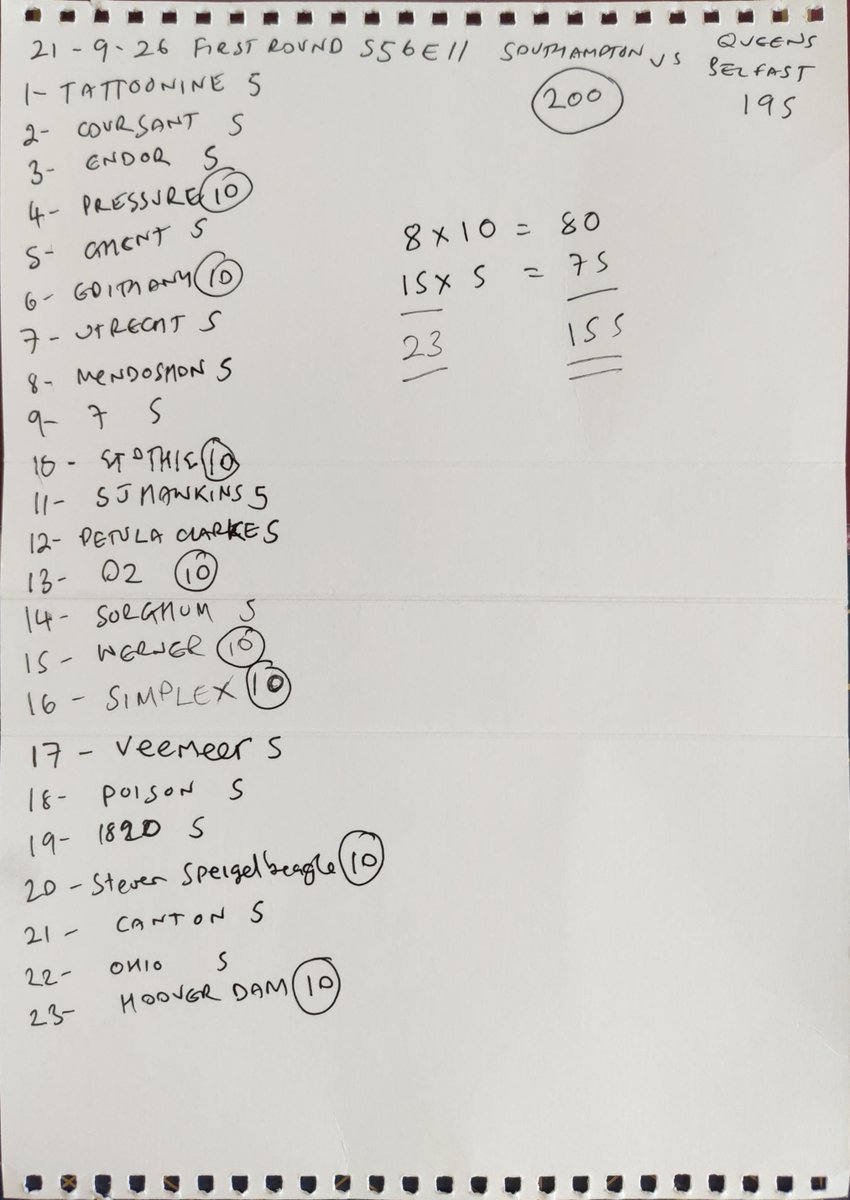 21-9-26 FIRST ROUND S56E11 SOUTHAMPTON VS QUEENS BELFAST
200 195
1- TATTOONINE 5
2- COURSANT 5
3- ENDOR 5
4- PRESSURE 10
5- GHENT 5
6- 10
7- UTRECHT 5
8- MENDOSHON 5
9- 7 5
10- 10
11- SJ HAWKINS 5
12- PETULA CLARKE 5
13- O2 10
14- SORGHUM 5
15- WERNER 10
16- SIMPLEX 10
17- VeeMeer 5
18- POISON 5
19- 1820 5
20- Steven Speigelbeagle 10
21- CANTON 5
22- OHIO 5
23- HOOVER DAM 10
8 X 10 = 80
15 X 5 = 75
23 155